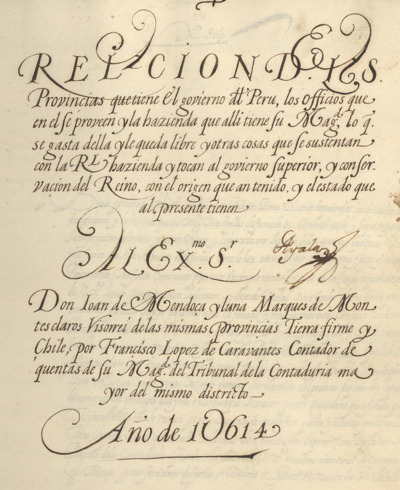 RELACION D. LAS.
Provincias que tiene El govierno dl Peru, los officios que
en el se proveen y la hazienda que alli tiene su Magd. lo q̄
se gasta della y le queda libre y otras cosas que se sustentan
con la Rl hazienda y tocan al govierno superior, y conser-
vacion del Reino, con el origen que an tenido, y el estado que
al presente tienen
AL Exmo. Sr
Ayala
Don Ioan de Mendoça y luna Marques de Mon-
tes claros Visorrei de las mismas provincias Tierra firme y
Chile, por Francisco Lopez de Caravantes Contador de
quentas de su Magd. del Tribunal de la Contaduria ma
yor del mismo districto
Año de 10614